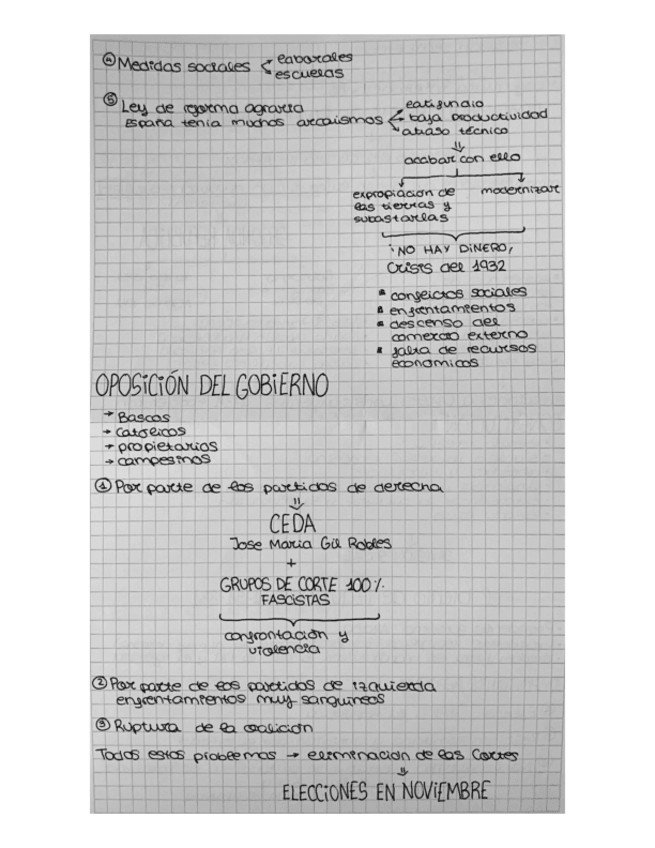 ④ Medidas sociales < laborales
escuelas
⑤ Ley de reforma agraria
España tenía muchos arcaismos ← latifundio
baja productividad
atraso técnico
⇓
acabar con ello
expropiación de las tierras y subastarlas
modernizar
¡NO HAY DINERO,
Crisis del 1932
▪ conflictos sociales
▪ enfrentamientos
▪ descenso del
comercio externo
▪ falta de recursos
económicos
OPOSICIÓN DEL GOBIERNO
→ Bascos
→ católicos
→ propietarios
→ campesinos
① Por parte de los partidos de derecha
⇓
CEDA
Jose Maria Gil Robles
+
GRUPOS DE CORTE 100%
FASCISTAS
confrontación y
violencia
② Por parte de los partidos de izquierda
enfrentamientos muy sanguineos
③ Ruptura de la coalición
Todos estos problemas → eliminación de las Cortes
⇓
ELECCIONES EN NOVIEMBRE